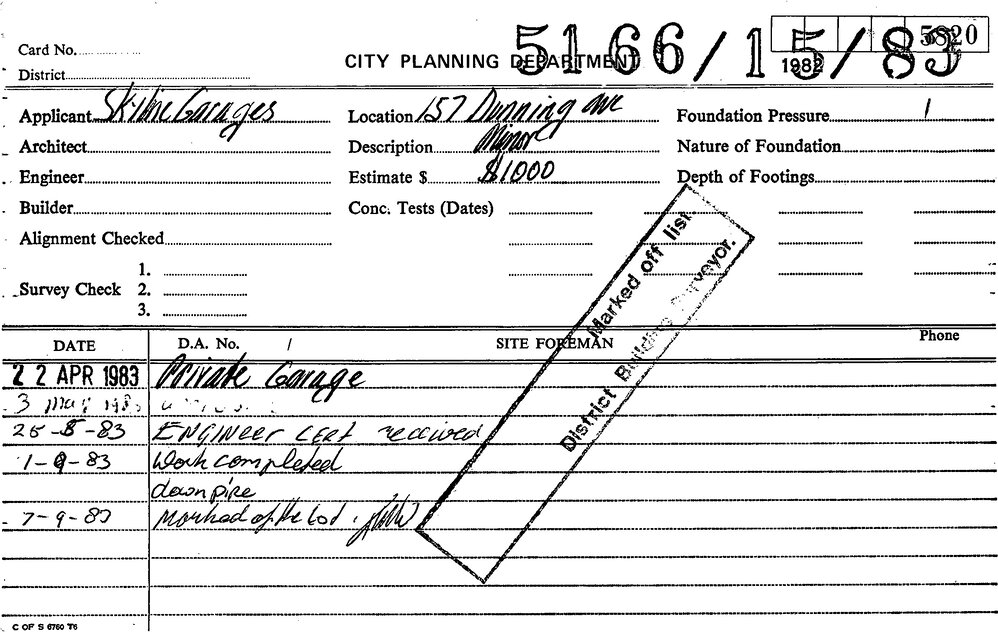 5166/15/83
5820
Card No.
CITY PLANNING DEPARTMENT
1982
District
Applicant Skiline Garages Location 157 Dunning ave Foundation Pressure
Architect Description Minor Nature of Foundation
Engineer Estimate $ $1000 Depth of Footings
Builder Conc. Tests (Dates)
Alignment Checked
1.
Survey Check 2.
3.
Marked off list
District Building Surveyor.
DATE D.A. No. / SITE FOREMAN Phone
22 APR 1983 Private Garage
3 May 1983
25-8-83 ENGINEER CERT received
1-9-83 Work completed
downpipe
7-9-83 Marked of the list.
C OF S 6760 T6